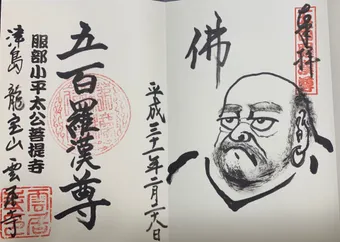 奉拝
佛
平成三十一年二月二八日
五百羅漢尊
服部小平太公菩提寺
津島 龍宝山 雲居寺